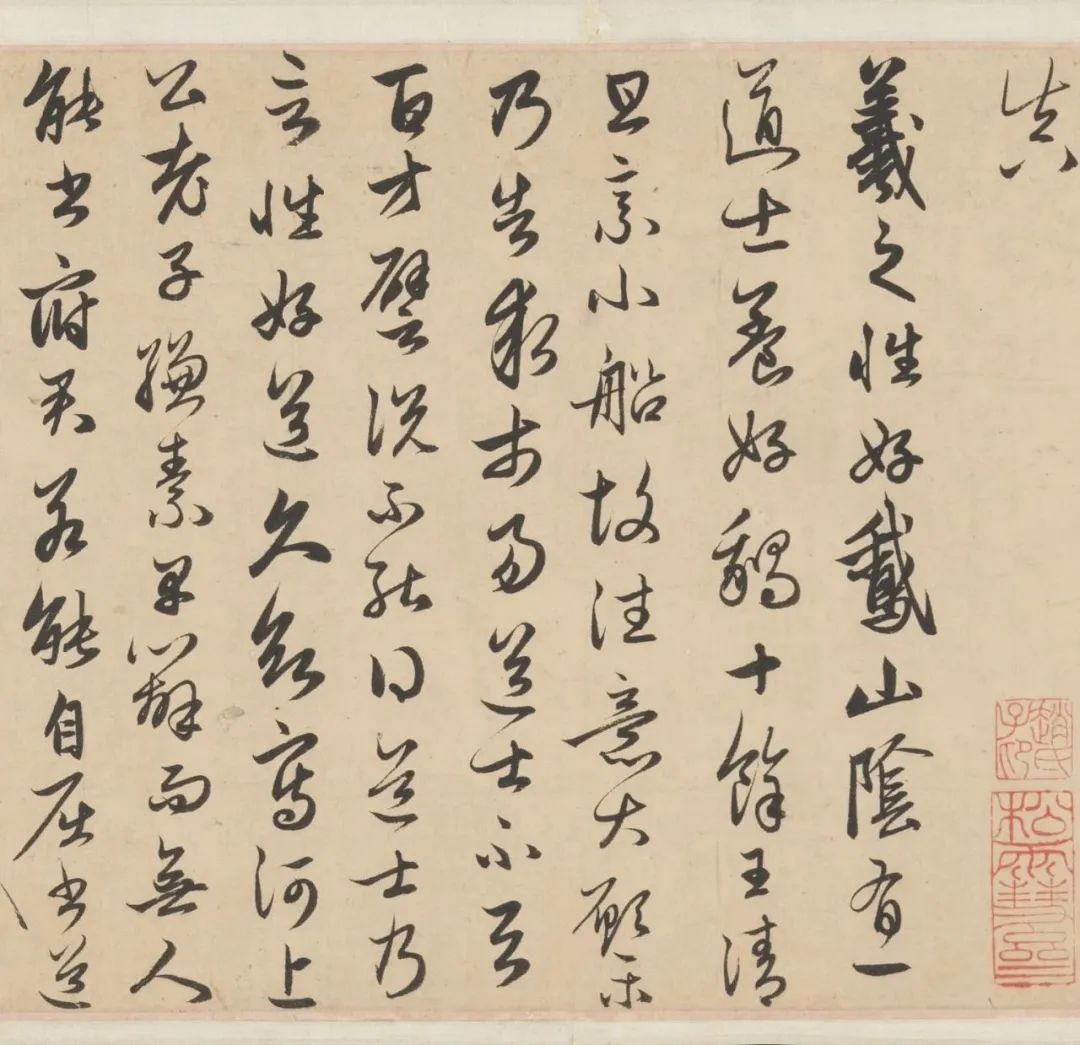 真
羲之性好鵞山陰有一
道士養好鵝十餘王清
旦乘小船故往意大願樂
乃告求市易道士不与
百方譬説不能得道士乃
言性好道久欲寫河上
公老子縑素早辦而無人
能書府君若能自屈書道
趙氏子昂
松雪齋